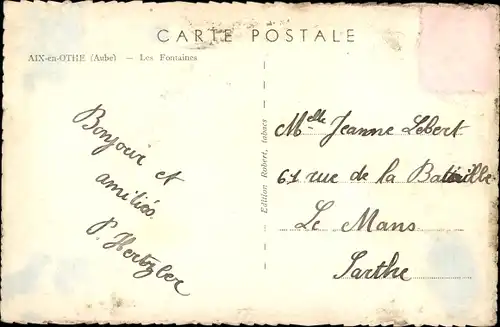 CARTE POSTALE
AIX-en-OTHE (Aube) — Les Fontaines
Bonjour et
amitiés
P. Hertzler
Edition Robert, tabacs
Melle Jeanne Lebert
61 rue de la Bataille
Le Mans
Sarthe